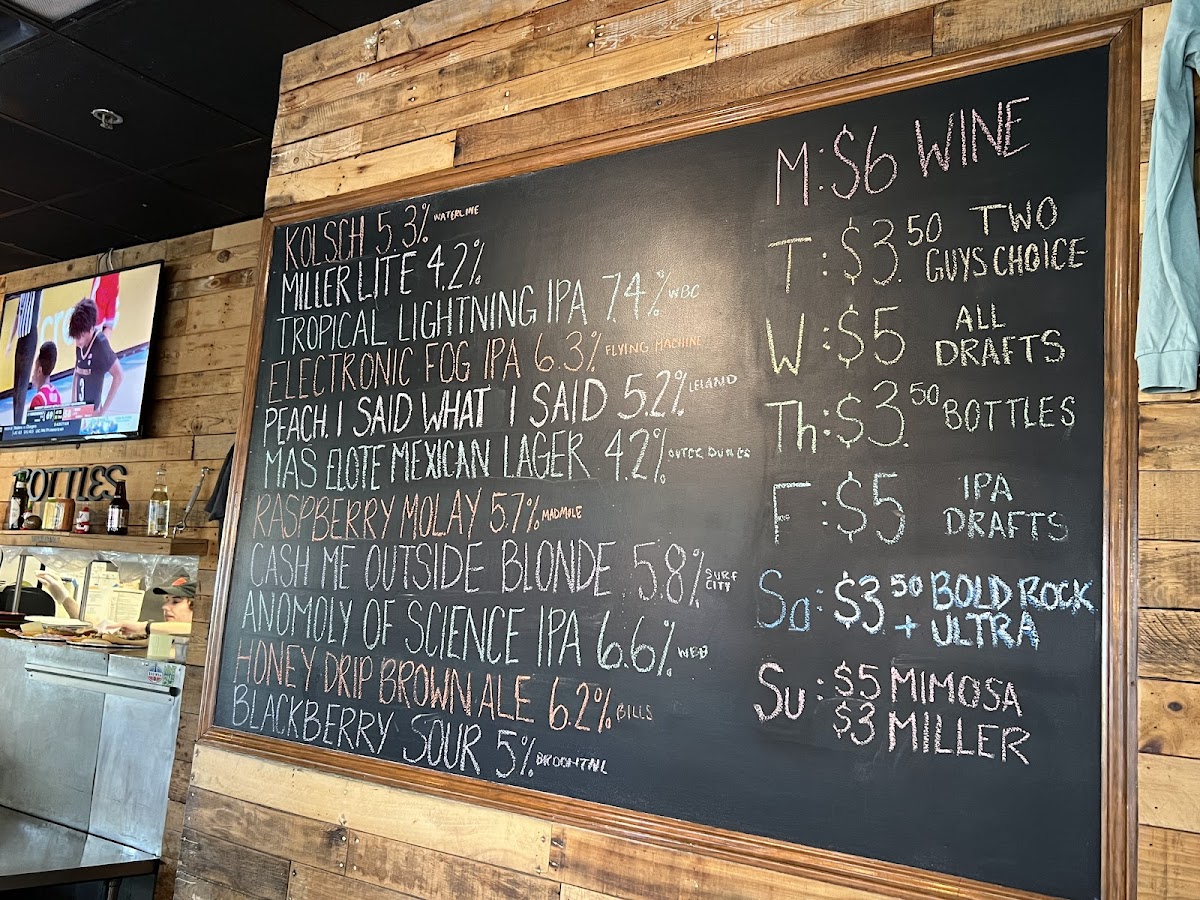 KOLSCH 5.3% WATERLINE
MILLER LITE 4.2%
TROPICAL LIGHTNING IPA 7.4% WBC
ELECTRONIC FOG IPA 6.3% FLYING MACHINE
PEACH. I SAID WHAT I SAID 5.2% LELAND
MAS ELOTE MEXICAN LAGER 4.2% OUTER DUNES
RASPBERRY MOLAY 5.7% MADMOLE
CASH ME OUTSIDE BLONDE 5.8% SURF CITY
ANOMOLY OF SCIENCE IPA 6.6% WBB
HONEY DRIP BROWN ALE 6.2% BILLS
BLACKBERRY SOUR 5% BROOMTNL
M: $6 WINE
T: $3.50 TWO
GUYS CHOICE
W: $5 ALL
DRAFTS
Th: $3.50 BOTTLES
F: $5 IPA
DRAFTS
Sa: $3.50 BOLD ROCK
+ ULTRA
Su: $5 MIMOSA
$3 MILLER
BOTTLES